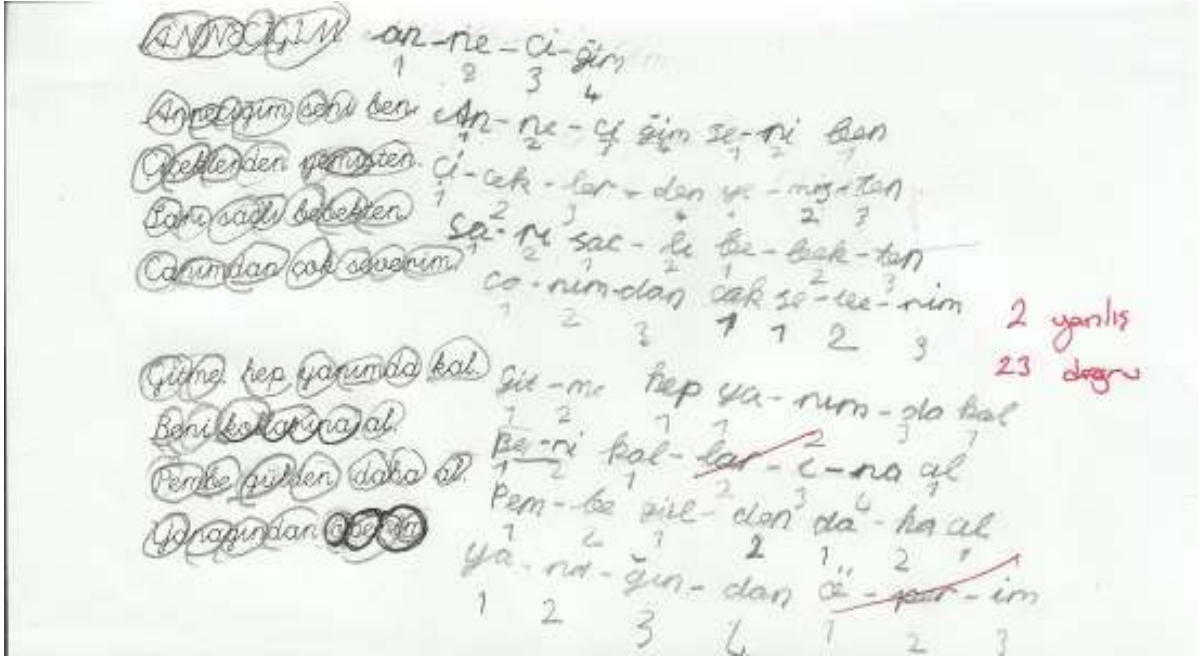 ANNECİĞİM an-ne-ci-ğim
1 2 3 4
Anneciğim seni ben. An-ne-ci ğim se-ni ben
1 2 3 4 1 2 1
Çiçeklerden yemişten. Çi-cek-ler-den ye-miş-ten
1 2 3 4 1 2 3
Sarı saçlı bebekten Sa-rı sac-lı be-bek-ten
1 2 1 2 1 2 3
Canımdan çok severim. ca-nım-dan cok se-ve-rim
1 2 3 1 1 2 3
2 yanlış
23 doğru
Gitme hep yanımda kal. Git-me hep ya-nım-da kal
1 2 1 1 2 3 1
Beni kollarına al. Be-ni kol-lar-ı-na al
1 2 1 2 3 4 1
Pembe gülden daha al. Pem-be gül-den da-ha al
1 2 1 2 1 2 1
Yanağından öperim ya-na-ğın-dan ö-per-im
1 2 3 4 1 2 3